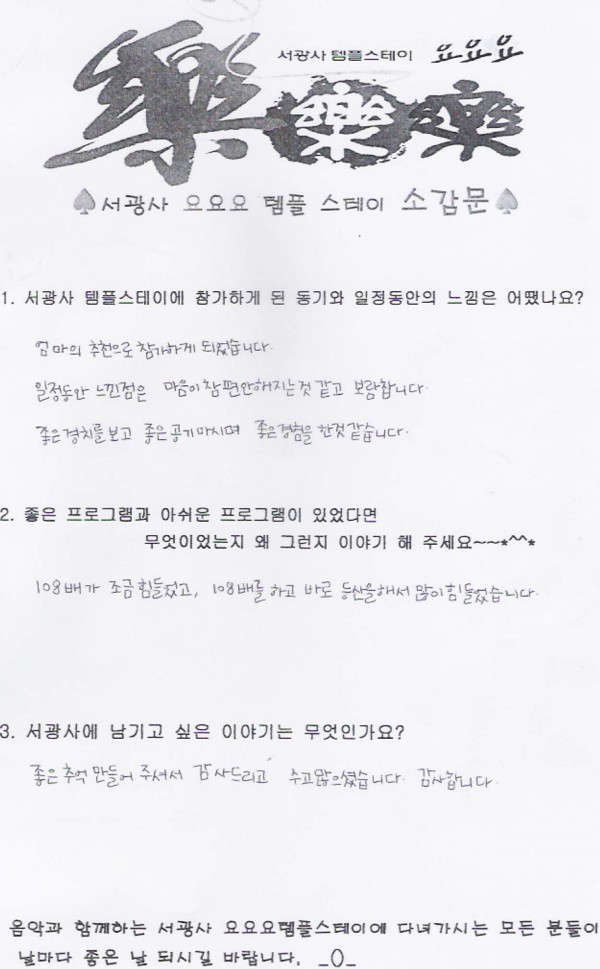 서광사 템플스테이 요요요
樂 樂 樂
서광사 요요요 템플 스테이 소감문
1. 서광사 템플스테이에 참가하게 된 동기와 일정동안의 느낌은 어땠나요?
엄마의 추천으로 참가하게 되었습니다.
일정동안 느낀점은 마음이 참 편안해지는것 같고 보람찹니다.
좋은경치를 보고 좋은 공기 마시며 좋은경험을 한것 같습니다.
2. 좋은 프로그램과 아쉬운 프로그램이 있었다면
무엇이었는지 왜 그런지 이야기 해 주세요~~*^^*
108배가 조금 힘들었고, 108배를 하고 바로 등산을해서 많이 힘들었습니다.
3. 서광사에 남기고 싶은 이야기는 무엇인가요?
좋은 추억 만들어 주셔서 감사드리고 수고많으셨습니다. 감사합니다.
음악과 함께하는 서광사 요요요템플스테이에 다녀가시는 모든 분들이
날마다 좋은 날 되시길 바랍니다. _()_